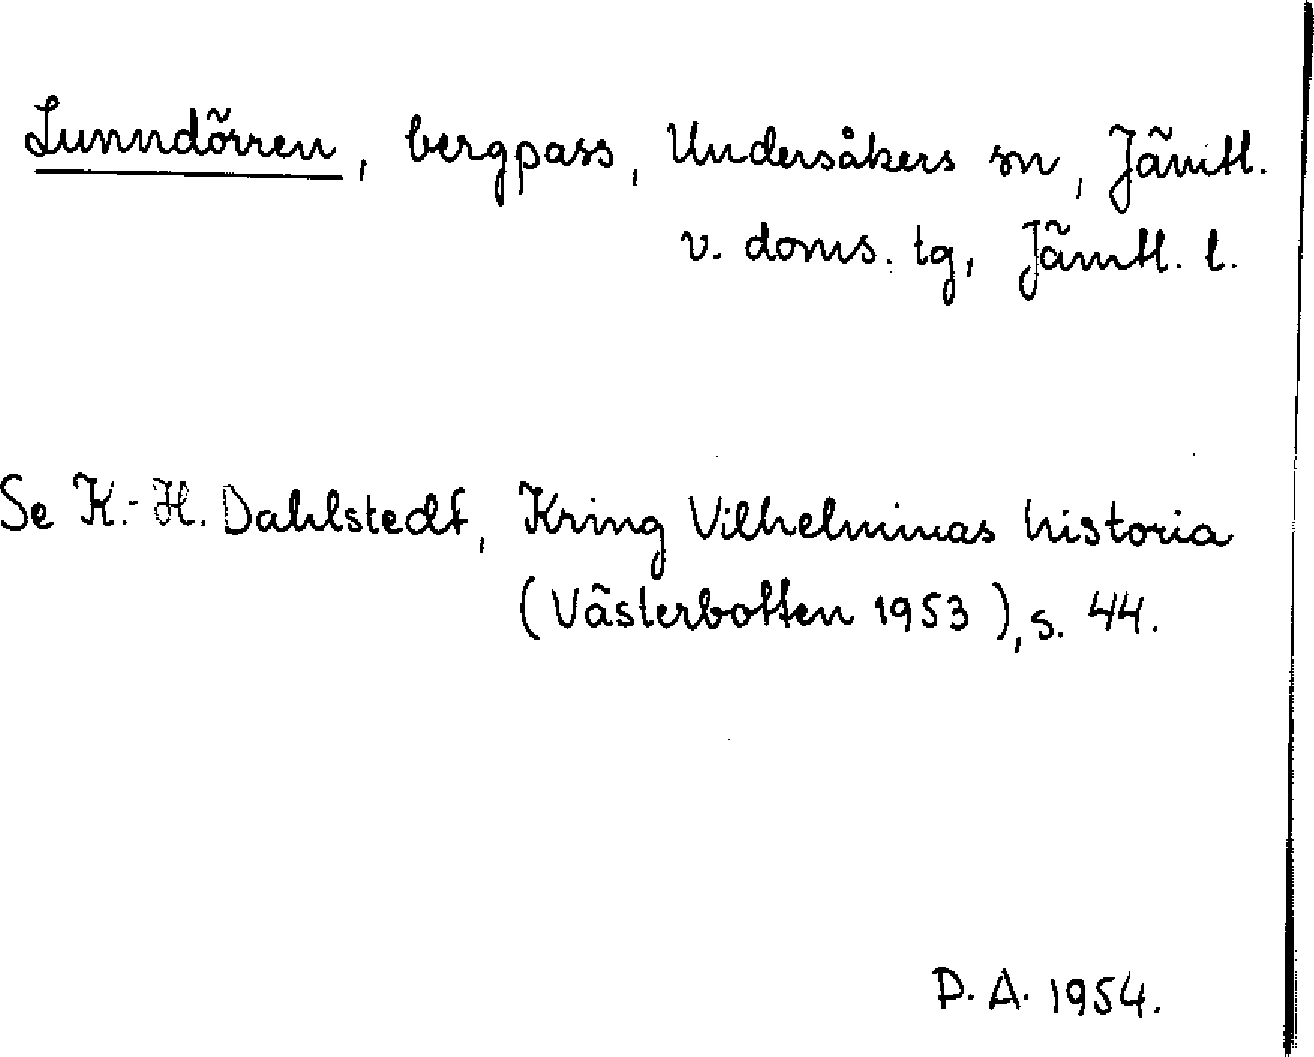 Lunndörren, bergpass, Undersåkers sn, Jämtl.
v. doms. tg, Jämtl. l.
Se K.-H. Dahlstedt, Kring Vilhelminas historia
(Västerbotten 1953), s. 44.
D. A. 1954.